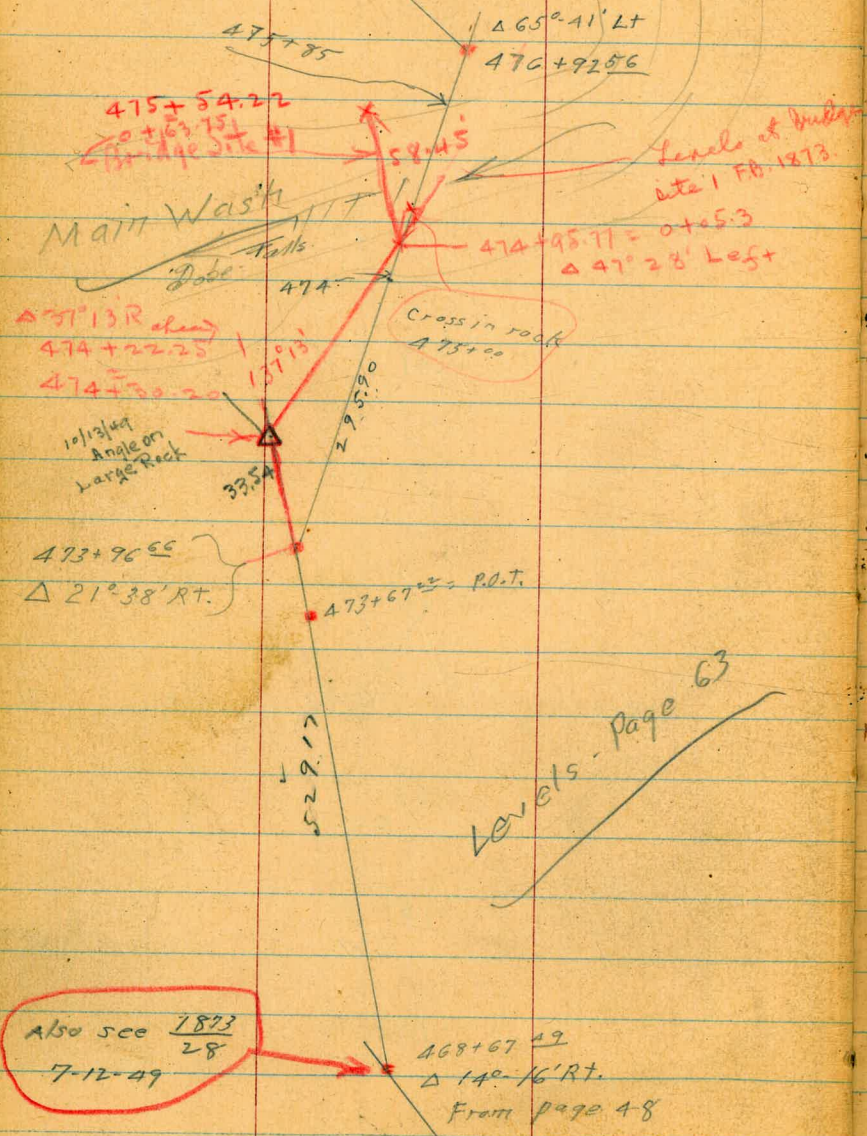 Δ 65°-41' Lt
476 + 92 56
475+85
475 + 54.22
0 + 63.75
Bridge Site #1
58.45'
Levels at Bridge
site 1 F.B. 1873.
Main Wash
Falls
Dobe
474
474+95.77 = 0+05.3
Δ 47° 28' Left
Cross in rock
475+00
Δ 37°13' R ahead
474 + 22.25
=
474+30.20
137°13'
295.90
10/13/49
Angle on
Large Rock
33.54
473+96 66
Δ 21°-38' Rt.
473+67 22 = P.O.T.
529.17
Levels - Page 63
Also see 1873
28
7-12-49
468+67 49
Δ 14°-16' Rt.
From page 48